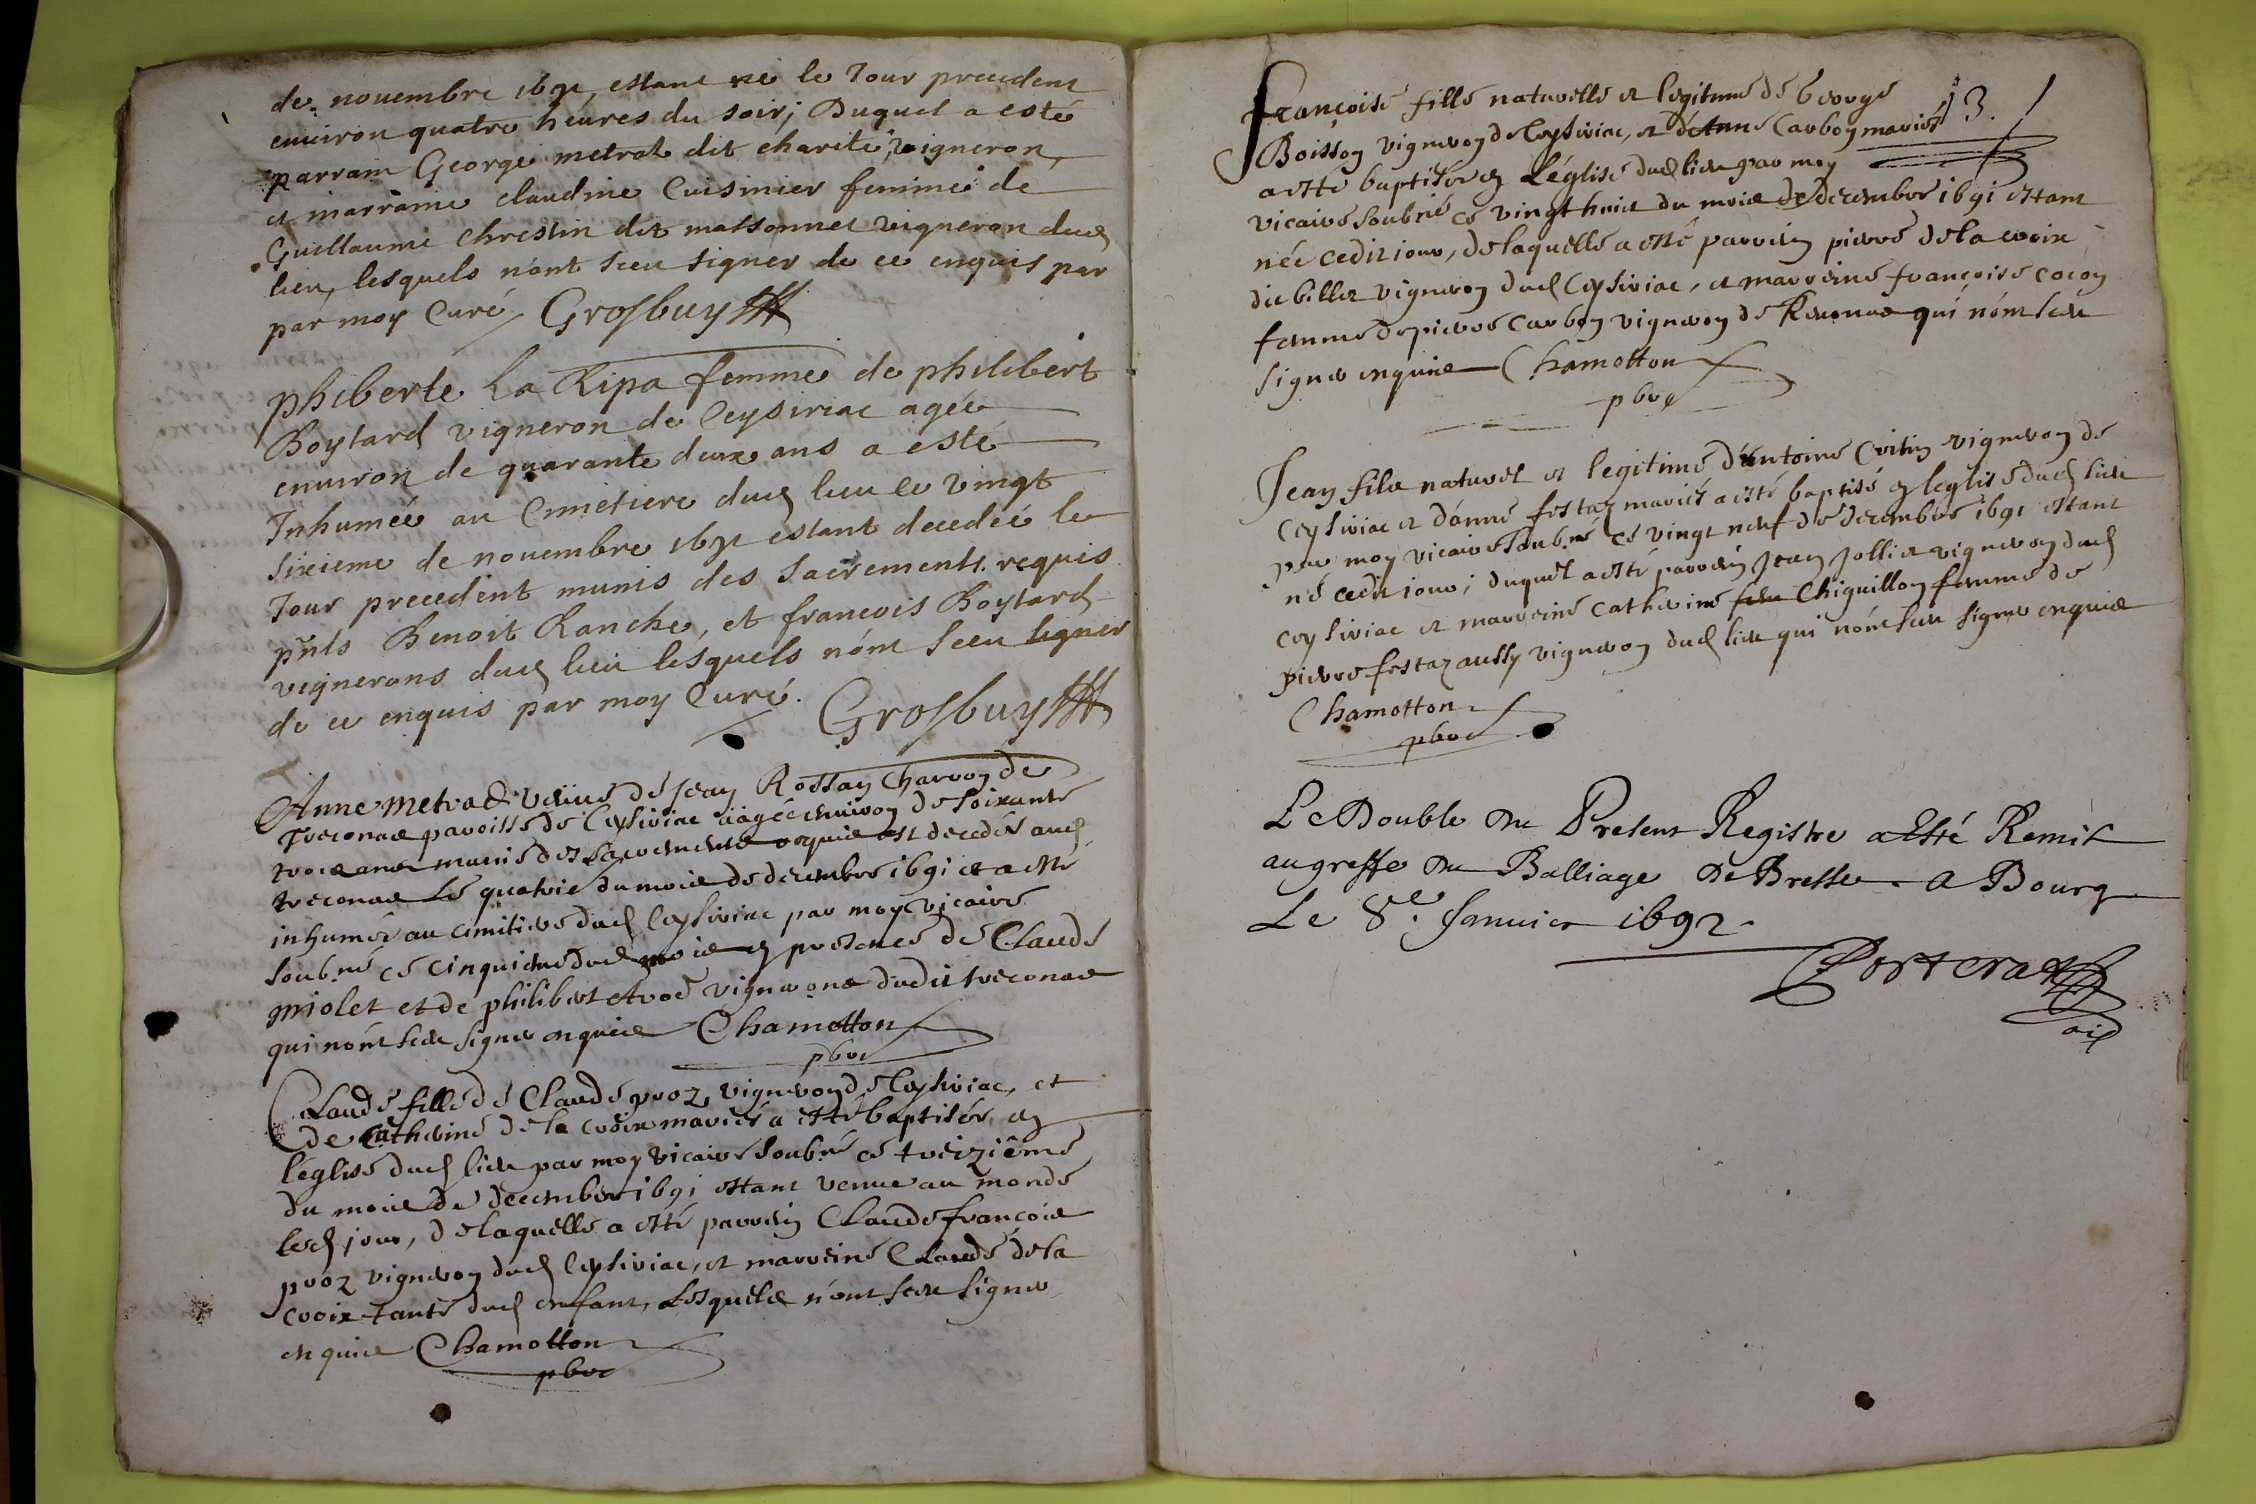 de novembre 1691, estant né le Jour precedent
environ quatre heures du soir; Duquel a esté
parrain George metrat dit charité, vigneron,
et marraine claudine Cuisinier femme de
Guillaume chrestin dit massonnet vigneron dud
lieu, lesquels n'ont sceu signer de ce enquis par
par moy Curé. Grosbuy
phiberte La Ripa femme de philibert
Boytard vigneron de Ceysiriac agée
environ de quarante deux ans a esté
Inhumée au Cimetiere dud lieu le vingt
sixieme de novembre 1691 estant decedée le
Jour precedent munis des sacrements requis
pnts Benoit Ranche, et francois Boytard
vignerons dud lieu lesquels n'ont sceu signer
de ce enquis par moy Curé. Grosbuy
Anne metrad veuve de Jean Rossan Charron de
Treconas paroisse de Ceysiriac aagée environ de soixante
trois ans munie des sacrements requis est decedée aud
treconas Le quatrie du mois de decembre 1691 et a esté
inhumée au cimitiere dud Ceysiriac par moy vicaire
soubné ce cinquieme dud mois en presence de Claude
miolet et de philibert vignerons dudit treconas
qui n'ont sceu signer enquis Chamotton
pbre
Claude fille de Claude proz vigneron de Ceysiriac, et
de Catherine de la croix mariés a esté baptisée en
l'église dud lieu par moy vicaire soubné ce treizième
du mois de decembre 1691 estant venue au monde
led jour, de laquelle a esté parrein Claude françois
proz vigneron dud Ceysiriac, et marreine Claude de la
croix tante dud enfant, Lesquels n'ont sceu signer
enquis Chamotton
pbre
13.
françoise fille naturelle et legitime de George
Boisson vigneron de Ceysiriac, et d'Anne Carbon mariés
a esté baptisée en L'église dud lieu par moy
vicaire soubné ce vingt huit du mois de decembre 1691 estant
née cedit jour, de laquelle a esté parrein pierre de la croix
dit billet vigneron dud Ceysiriac, et marreine françoise cocon
femme de pierre Carbon vigneron de Revonas qui n'ont sceu
signer enquis Chamotton
pbre
Jean fils naturel et legitime d'Antoine Critin vigneron de
Ceysiriac et d'anne festaz mariés a esté baptisé en leglise dud lieu
par moy vicaire soubné ce vingt neuf de decembre 1691 estant
né cedit jour; duquel a esté parrein Jean Jollier vigneron dud
ceysiriac et marreine catherine Chiguillon femme de
pierre festaz aussy vigneron dud lieu qui n'ont sceu signer enquis
Chamotton
pbre
Le Double du Present Registre a Esté Remis
au greffe du Balliage De Bresse a Bourg
Le 8e. Januier 1692.
Portcrat